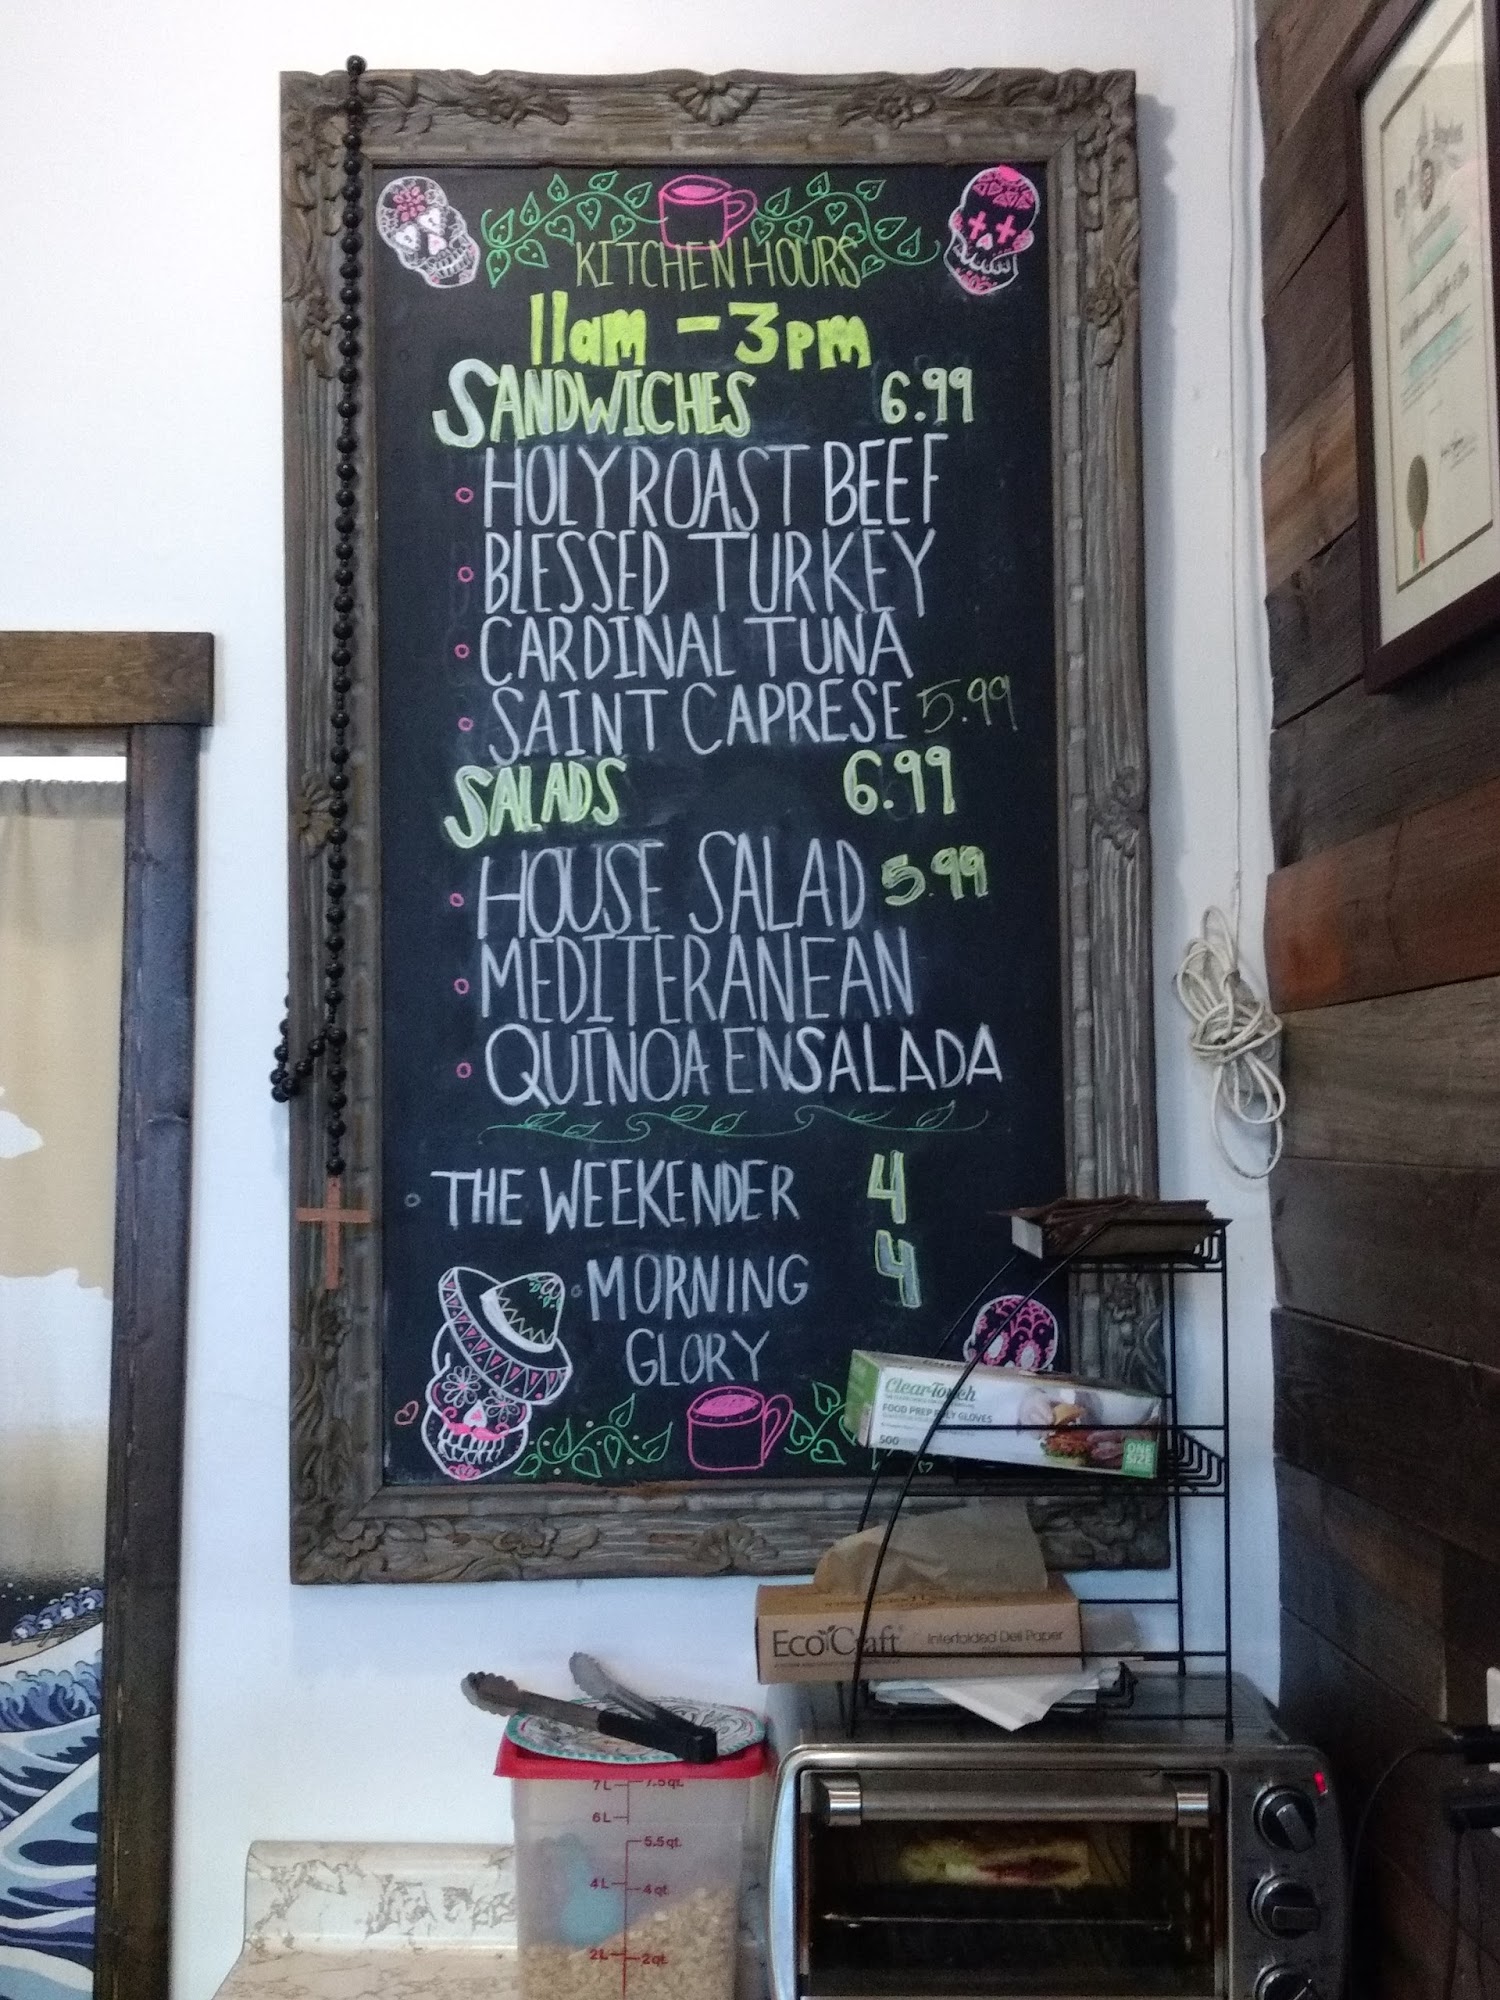 KITCHEN HOURS
11am - 3pm
SANDWICHES 6.99
HOLY ROAST BEEF
BLESSED TURKEY
CARDINAL TUNA
SAINT CAPRESE 5.99
SALADS 6.99
HOUSE SALAD 5.99
MEDITERANEAN
QUINOA ENSALADA
THE WEEKENDER 4
MORNING 4
GLORY
Clear-Touch
FOOD PREP POLY GLOVES
500
ONE
SIZE
EcoCraft Interfolded Deli Paper
7L 7.5qt.
6L
5.5qt.
4L 4qt.
2L 2qt.